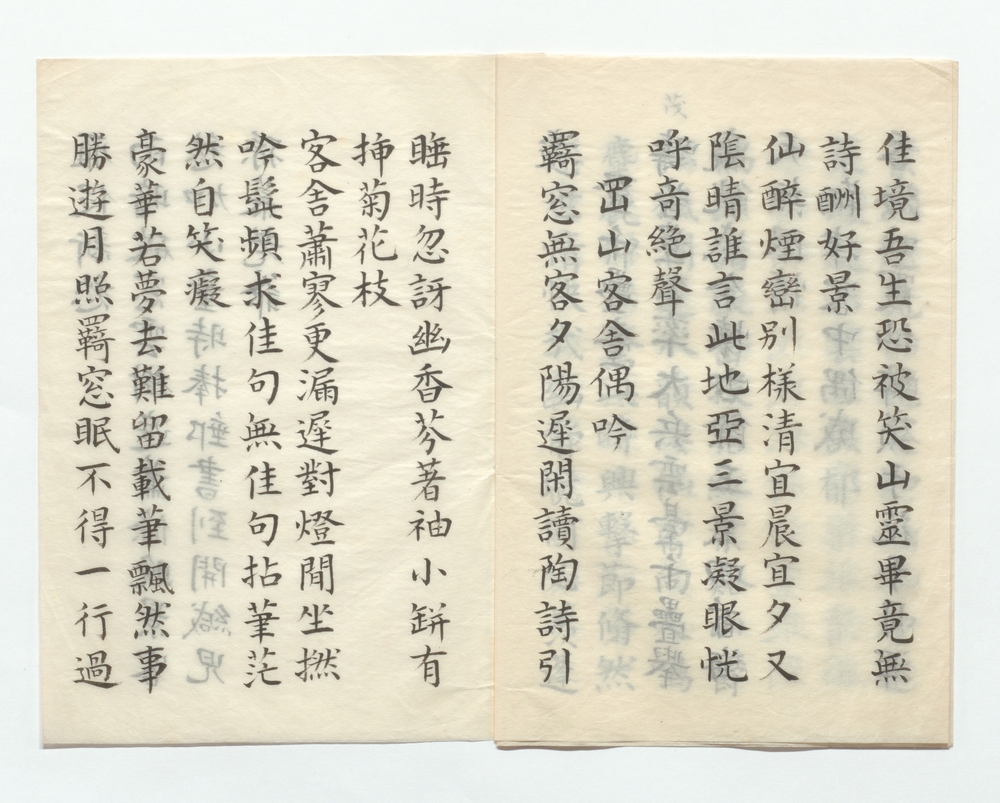 佳境吾生恐被笑山靈畢竟無
詩酬好景
仙醉煙巒別様清宜晨宜夕又
陰晴誰言此地亞三景凝眼恍
呼奇絶聲
岊山客舍偶吟
羈窓無客夕陽遲閑讀陶詩引
睡時忽訝幽香芬著袖小缾有
揷菊花枝
客舍蕭寥更漏遲對燈間坐撚
吟髭頻求佳句無佳句拈筆茫
然自笑癡
豪華若夢去難留載筆飄然事
勝遊月照羈窓眠不得一行過